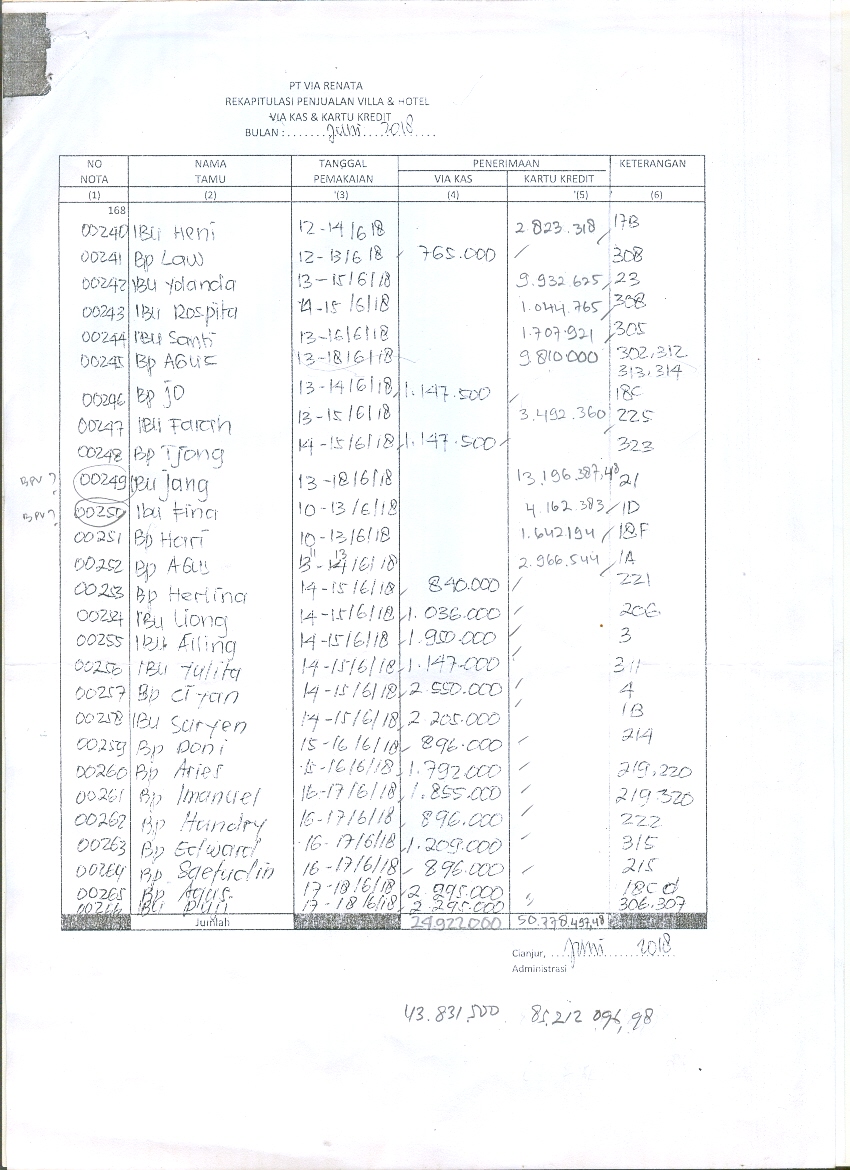 PT VIA RENATA
REKAPITULASI PENJUALAN VILLA & HOTEL
VIA KAS & KARTU KREDIT
BULAN : Juni 2018
NO NOTA NAMA TAMU TANGGAL PEMAKAIAN PENERIMAAN VIA KAS KARTU KREDIT KETERANGAN
(1) (2) '(3) (4) '(5) (6)
168
00240 IBU Heni 12-14/6/18 2.823.318 17B
00241 Bp Law 12-13/6/18 765.000 308
00242 IBU Yolanda 13-15/6/18 9.932.625 23
00243 IBU Rospita 14-15/6/18 1.044.765 308
00244 IBU Santi 13-16/6/18 1.707.921 305
00245 Bp AGUS 13-18/6/18 9.810.000 302.312.
313.314
00246 Bp JO 13-14/6/18 1.147.500 18C
00247 IBU Farah 13-15/6/18 3.492.360 225
00248 Bp Tjong 14-15/6/18 1.147.500 323
BPV ? 00249 IBU Jang 13-18/6/18 13.196.387,48 21
BPV ? 00250 Ibu Fina 10-13/6/18 4.162.383 1D
00251 Bp Hari 10-13/6/18 1.642194 18.F
00252 Bp AGUS 11 13 /6/18 2.966.544 1A
00253 Bp Herlina 14-15/6/18 840.000 221
00254 IBU Liong 14-15/6/18 1.036.000 206
00255 IBU Alling 14-15/6/18 1.950.000 3
00256 IBU Yulita 14-15/6/18 1.147.000 311
00257 Bp 14-15/6/18 2 550.000 4
00258 IBU Suryen 14-15/6/18 2 205.000 1B
00259 Bp Doni 15-16/6/18 896.000 214
00260 Bp Aries 15-16/6/18 1.792.000 219.220
00261 Bp Imanuel 16-17/6/18 1.855.000 219 320
00262 Bp Handry 16-17/6/18 896.000 222
00263 Bp Edward 16-17/6/18 1.209.000 315
00264 Bp Saefudin 16-17/6/18 896.000 215
00265 Bp Agus. 17-18/6/18 2.995.000 18C d
00266 IBU 17-18/6/18 2.295.000 306.307
Jumlah 24.922.000 50.778.497,48
Cianjur, Juni 2018
Administrasi
43.831.500 85.212 096,98